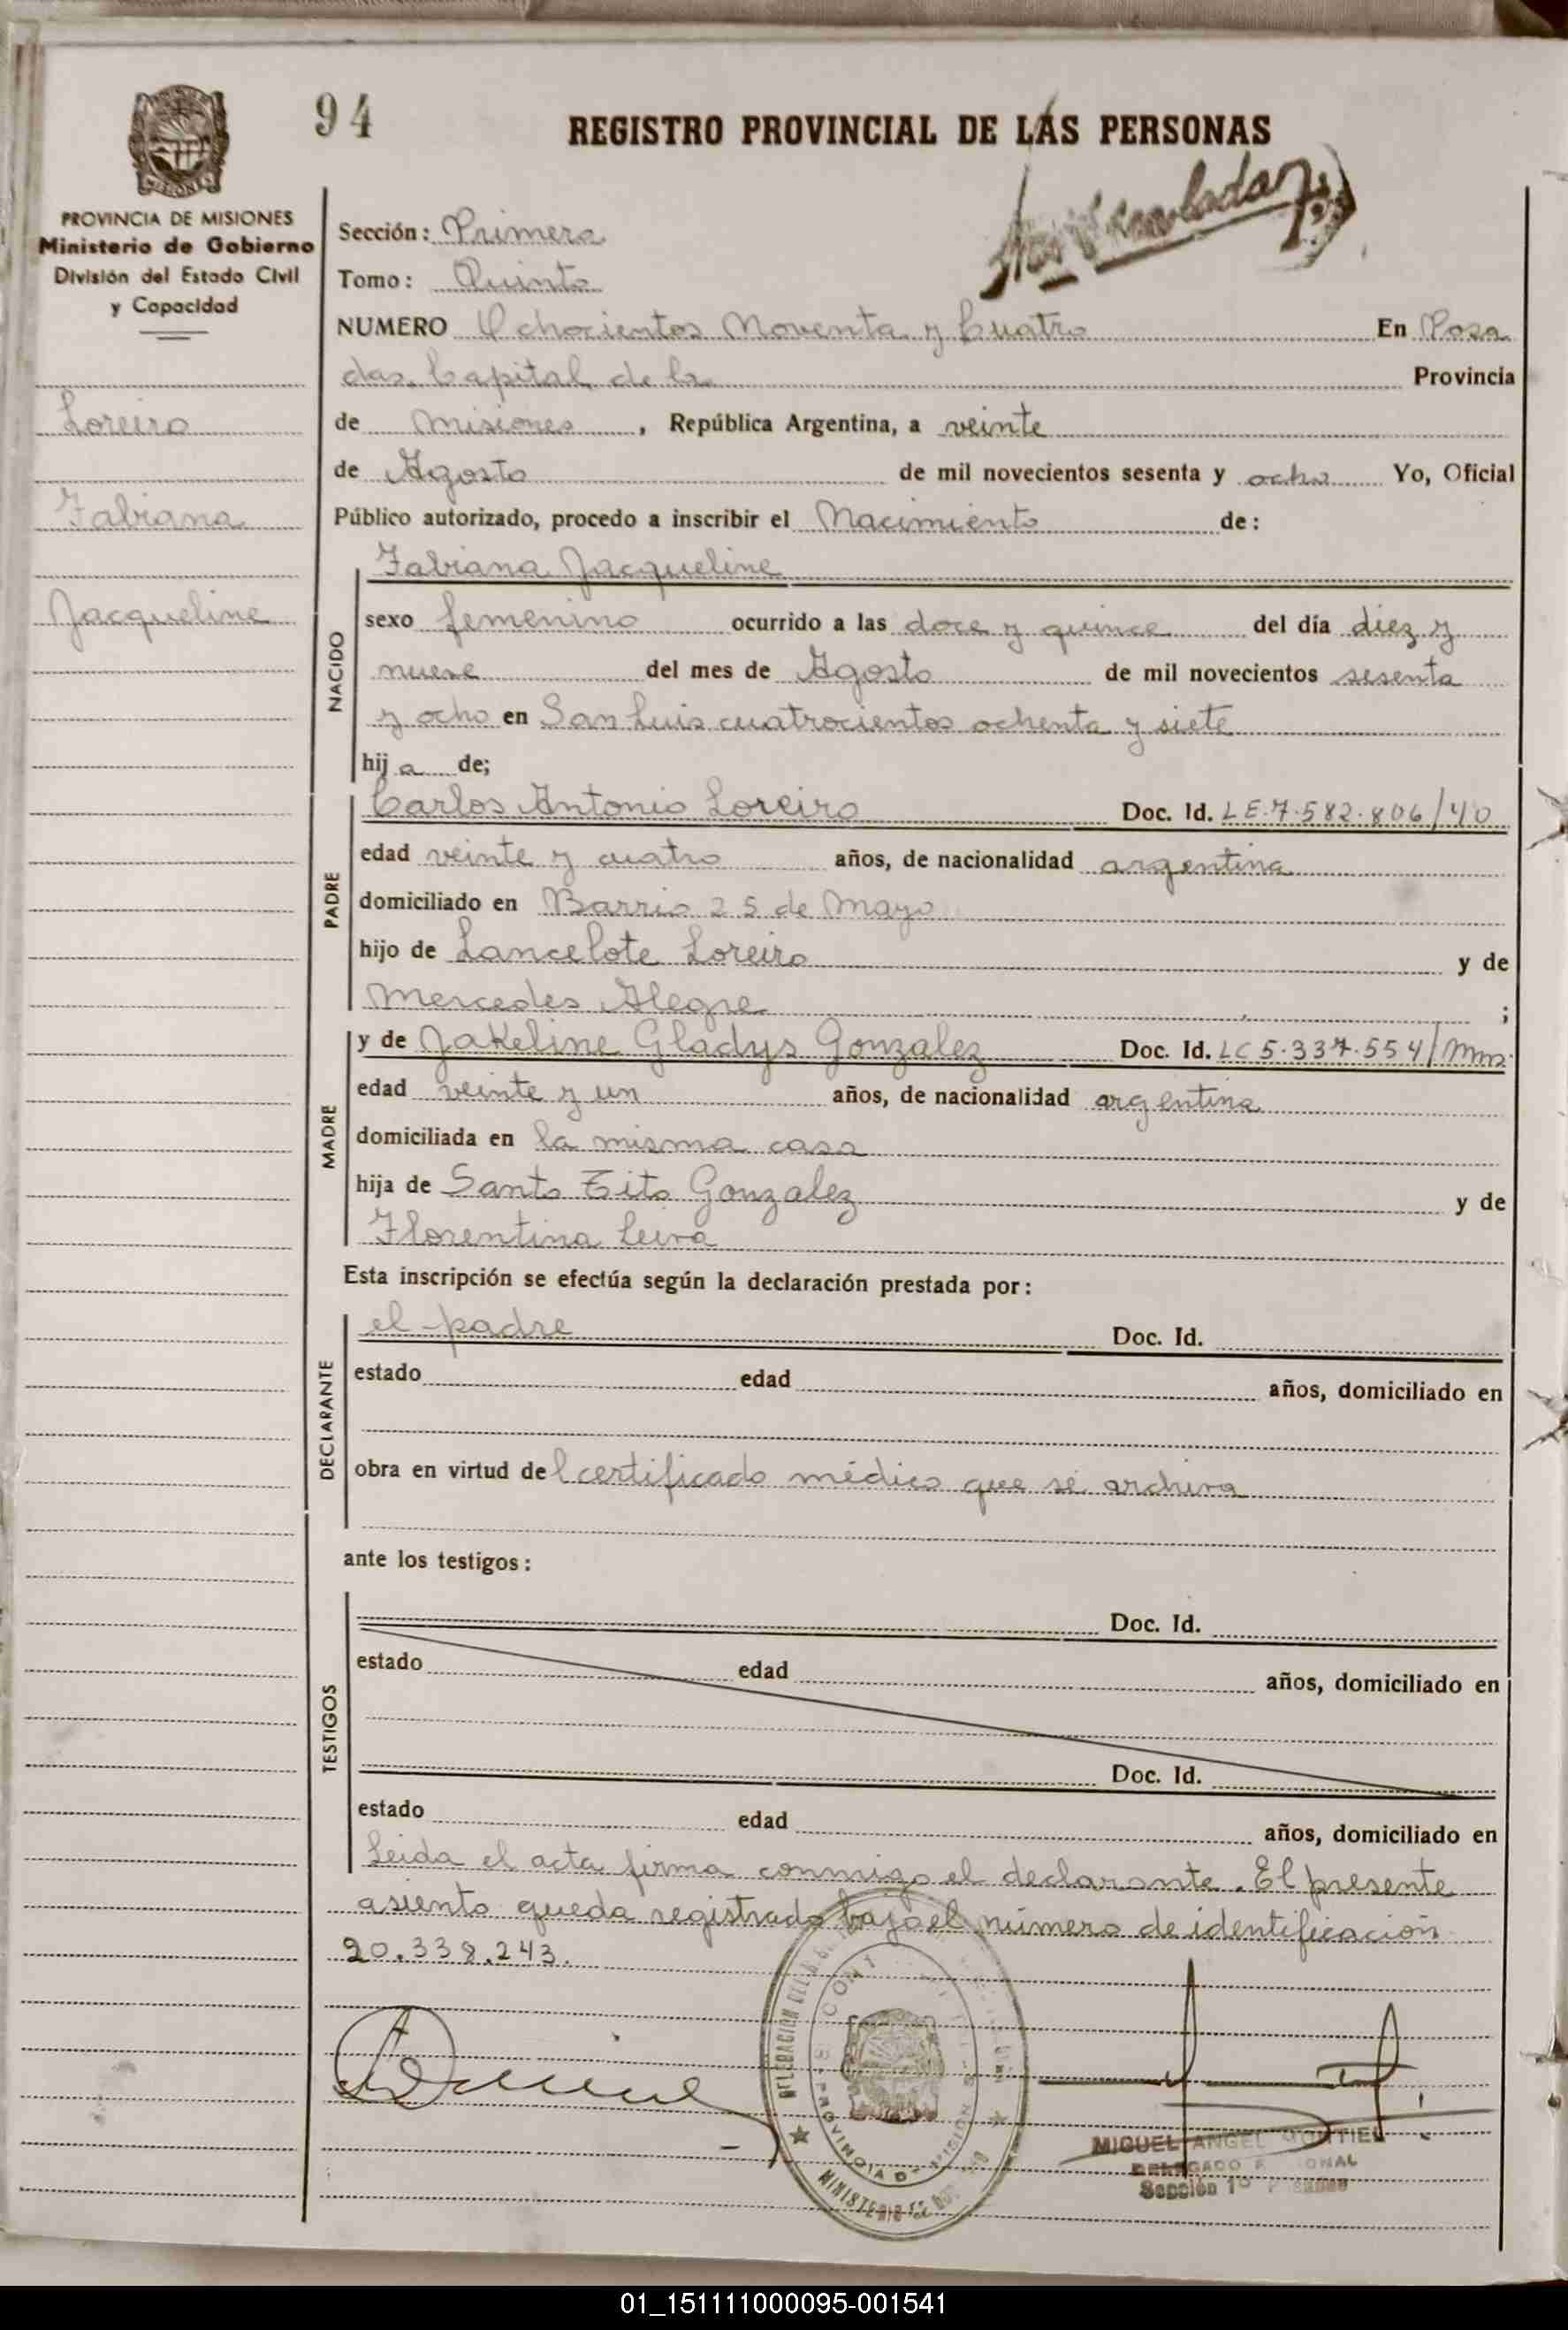 94
REGISTRO PROVINCIAL DE LAS PERSONAS
PROVINCIA DE MISIONES
Ministerio de Gobierno
División del Estado Civil
y Capacidad
Loreiro
Fabiana
Jacqueline
Sección: Primera
Tomo: Quinto
NUMERO Ochocientos Noventa y Cuatro En Posa
das, Capital de la Provincia
de Misiones, República Argentina, a veinte
de Agosto de mil novecientos sesenta y ocho Yo, Oficial
Público autorizado, procedo a inscribir el Nacimiento de:
NACIDO
Fabiana Jacqueline
sexo femenino ocurrido a las doce y quince del día diez y
nueve del mes de Agosto de mil novecientos sesenta
y ocho en San Luis cuatrocientos ochenta y siete
hija de;
PADRE
Carlos Antonio Loreiro Doc. Id. LE.7.582.806/40
edad veinte y cuatro años, de nacionalidad argentina
domiciliado en Barrio 25 de Mayo
hijo de Lancelote Loreiro y de
Mercedes Alegre ;
MADRE
y de Jakeline Gladys Gonzalez Doc. Id. LC 5.337.554/Mns.
edad veinte y un años, de nacionalidad argentina
domiciliada en la misma casa
hija de Santo Tito Gonzalez y de
Florentina Leiva
Esta inscripción se efectúa según la declaración prestada por:
DECLARANTE
el padre Doc. Id.
estado edad años, domiciliado en
obra en virtud del certificado médico que se archiva
ante los testigos:
TESTIGOS
Doc. Id.
estado edad años, domiciliado en
Doc. Id.
estado edad años, domiciliado en
Leida el acta firma conmigo el declarante. El presente
asiento queda registrado bajo el número de identificación
20.338.243.
MIGUEL ANGEL MONTIEL
DELEGADO
Sección 1º
01_151111000095-001541